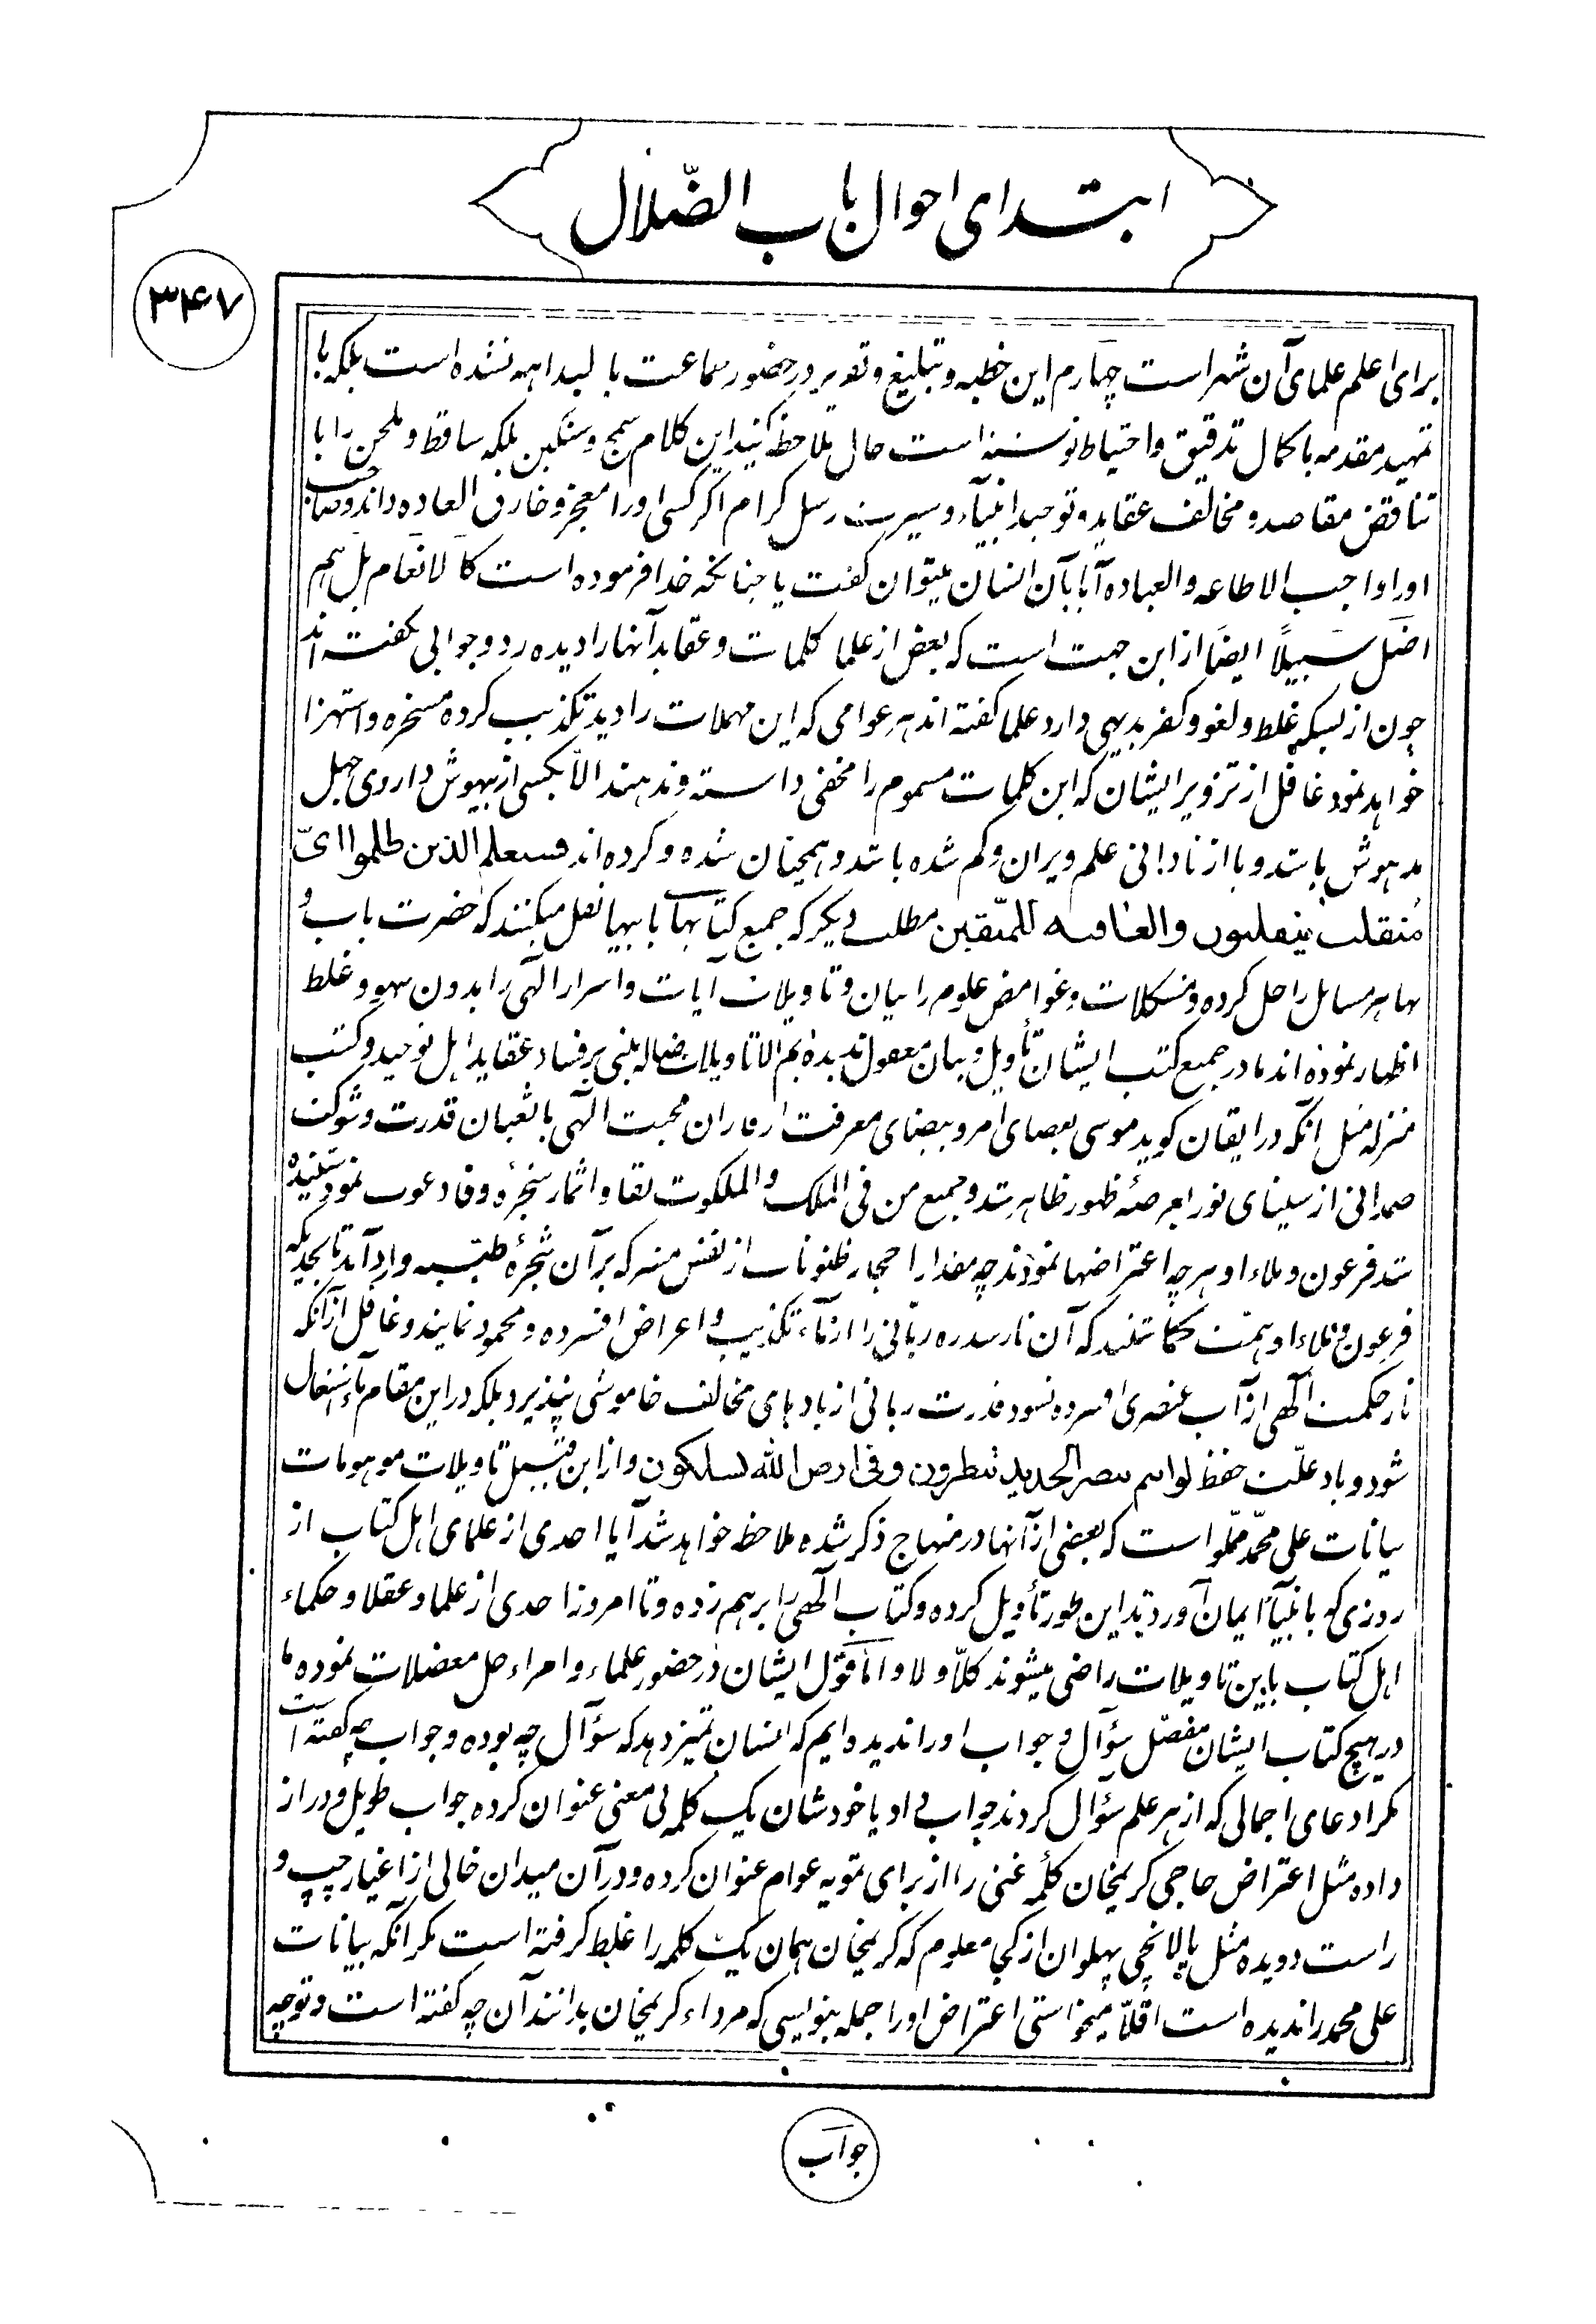 ابتدای احوال باب الضّلال
۳۴۷
برای اعلم علمای آن شهر است چهارم این خطبه و تبلیغ و تقریر در حضور جماعت بالبداهه نشده است بلکه با
تمهید مقدمه با کمال تدقیق و احتیاط نوشته است حال ملاحظه کنید این کلام سمج و سنگین بلکه ساقط و ملحن را با
تناقض مقاصد و مخالف عقاید و توحید انبیآء و سیرت رسل کرام اگر کسی او را معجز و خارق العاده داند و صاحب
او را واجب الاطاعه و العباده آیا بآن انسان میتوان گفت یا چنانکه خدا فرموده است کالانعام بل هم
اضل سبیلًا ایضاً از این جهت است که بعض از علما کلمات و عقاید آنها را دیده رد و جوابی نگفته اند
چون از بسکه غلط و لغو و کفر بدیهی دارد علما گفته اند هر عوامی که این مهملات را دید تکذیب کرده مسخره و استهزا
خواهد نمود غافل از تزویر ایشان که این کلمات مسموم را مخفی داشته و ندهند الّا بکسی از بیهوش داروی جهل
مدهوش باشد و یا از نادانی علم ویران و گم شده باشد و همچنان شده و کرده اند فسیعلم الذین ظلموا ایّ
مُنقلب ینقلبون والعاقبه للمتّقین مطلب دیگر که جمیع کتابهآ بابیها نقل میکنند که حضرت باب و
بها هر مسایل را حل کرده و مشکلات و غوامض علوم را بیان و تاویلات آیات و اسرار الهی را بدون سهو و غلط
اظهار نموده اند ما در جمیع کتب ایشان تأویل و بیان معقول ندیده‌ایم الا تاویلات ضاله مبنی بر فساد عقاید اهل توحید و کتب
منزله مثل آنکه در ایقان گوید موسی بعصای امر و بیضای معرفت از فاران محبت الهی با ثعبان قدرت و شوکت
صمدانی از سینای نور بعرصهٔ ظهور ظاهر شد و جمیع من فی الملک و الملکوت بقا و اثمار شجرهٔ وفا دعوت نمود شنیده
شد فرعون و ملاء او هر چه اعتراضها نمودند چه مقدار احجار ظنونات از نفس مشرکه بر آن شجرهٔ طیّبه وارد آمد تا بحدیکه
فرعون و ملاء او همّت گماشتند که آن نار سدره ربّانی را از مآء تکذیب و اعراض افسرده و محمود نمایند و غافل از آنکه
نار حکمت الهی از آب عنصری افسرده نشود قدرت ربانی از بادهای مخالف خاموشی نپذیرد بلکه در این مقام مآء اشتعال
شود و باد علّت حفظ لو انتم ببصر الحدید تنظرون و فی ارض الله تسلکون و از این قبیل تاویلات موهومات
بیانات علی محمّد مملّو است که بعضی از آنها در منهاج ذکر شده ملاحظه خواهد شد آیا احدی از علمای اهل کتاب از
روزی که بانبیآء ایمان آوردند این طور تأویل کرده و کتاب الهی را برهم زده و تا امروز احدی از علما و عقلا و حکماء
اهل کتاب باین تاویلات راضی میشوند کلّا و لا و اما قول ایشان در حضور علماء و امراء حل معضلات نموده ما
در هیچ کتاب ایشان مفصّل سؤآل و جواب او را ندیده ایم که انسان تمیز دهد که سؤآل چه بوده و جواب چه گفته است
مگر ادعای اجمالی که از هر علم سؤآل کردند جواب داد یا خودشان یک کلمه بی معنی عنوان کرده جواب طویل و دراز
داده مثل اعتراض حاجی کریمخان کلمهٔ غنی را از برای تمویه عوام عنوان کرده و در آن میدان خالی از اغیار چپ و
راست دویده مثل یالانچی پهلوان از کجا معلوم که کریمخان همان یک کلمه را غلط گرفته است مگر آنکه بیانات
علی محمد را ندیده است اقلّا میخواستی اعتراض او را جمله بنویسی که مرداء کریمخان بدانند آن چه گفته است و توچه
جواب